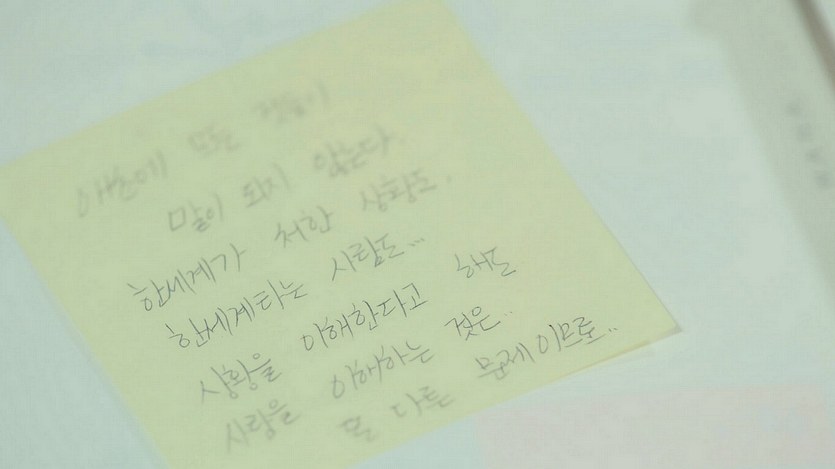 애초에 모든 것들이
말이 되지 않는다
한세계가 처한 상황도.
한세계라는 사람도...
상황을 이해한다고 해도
사람을 이해하는 것은..
또 다른 문제이므로..